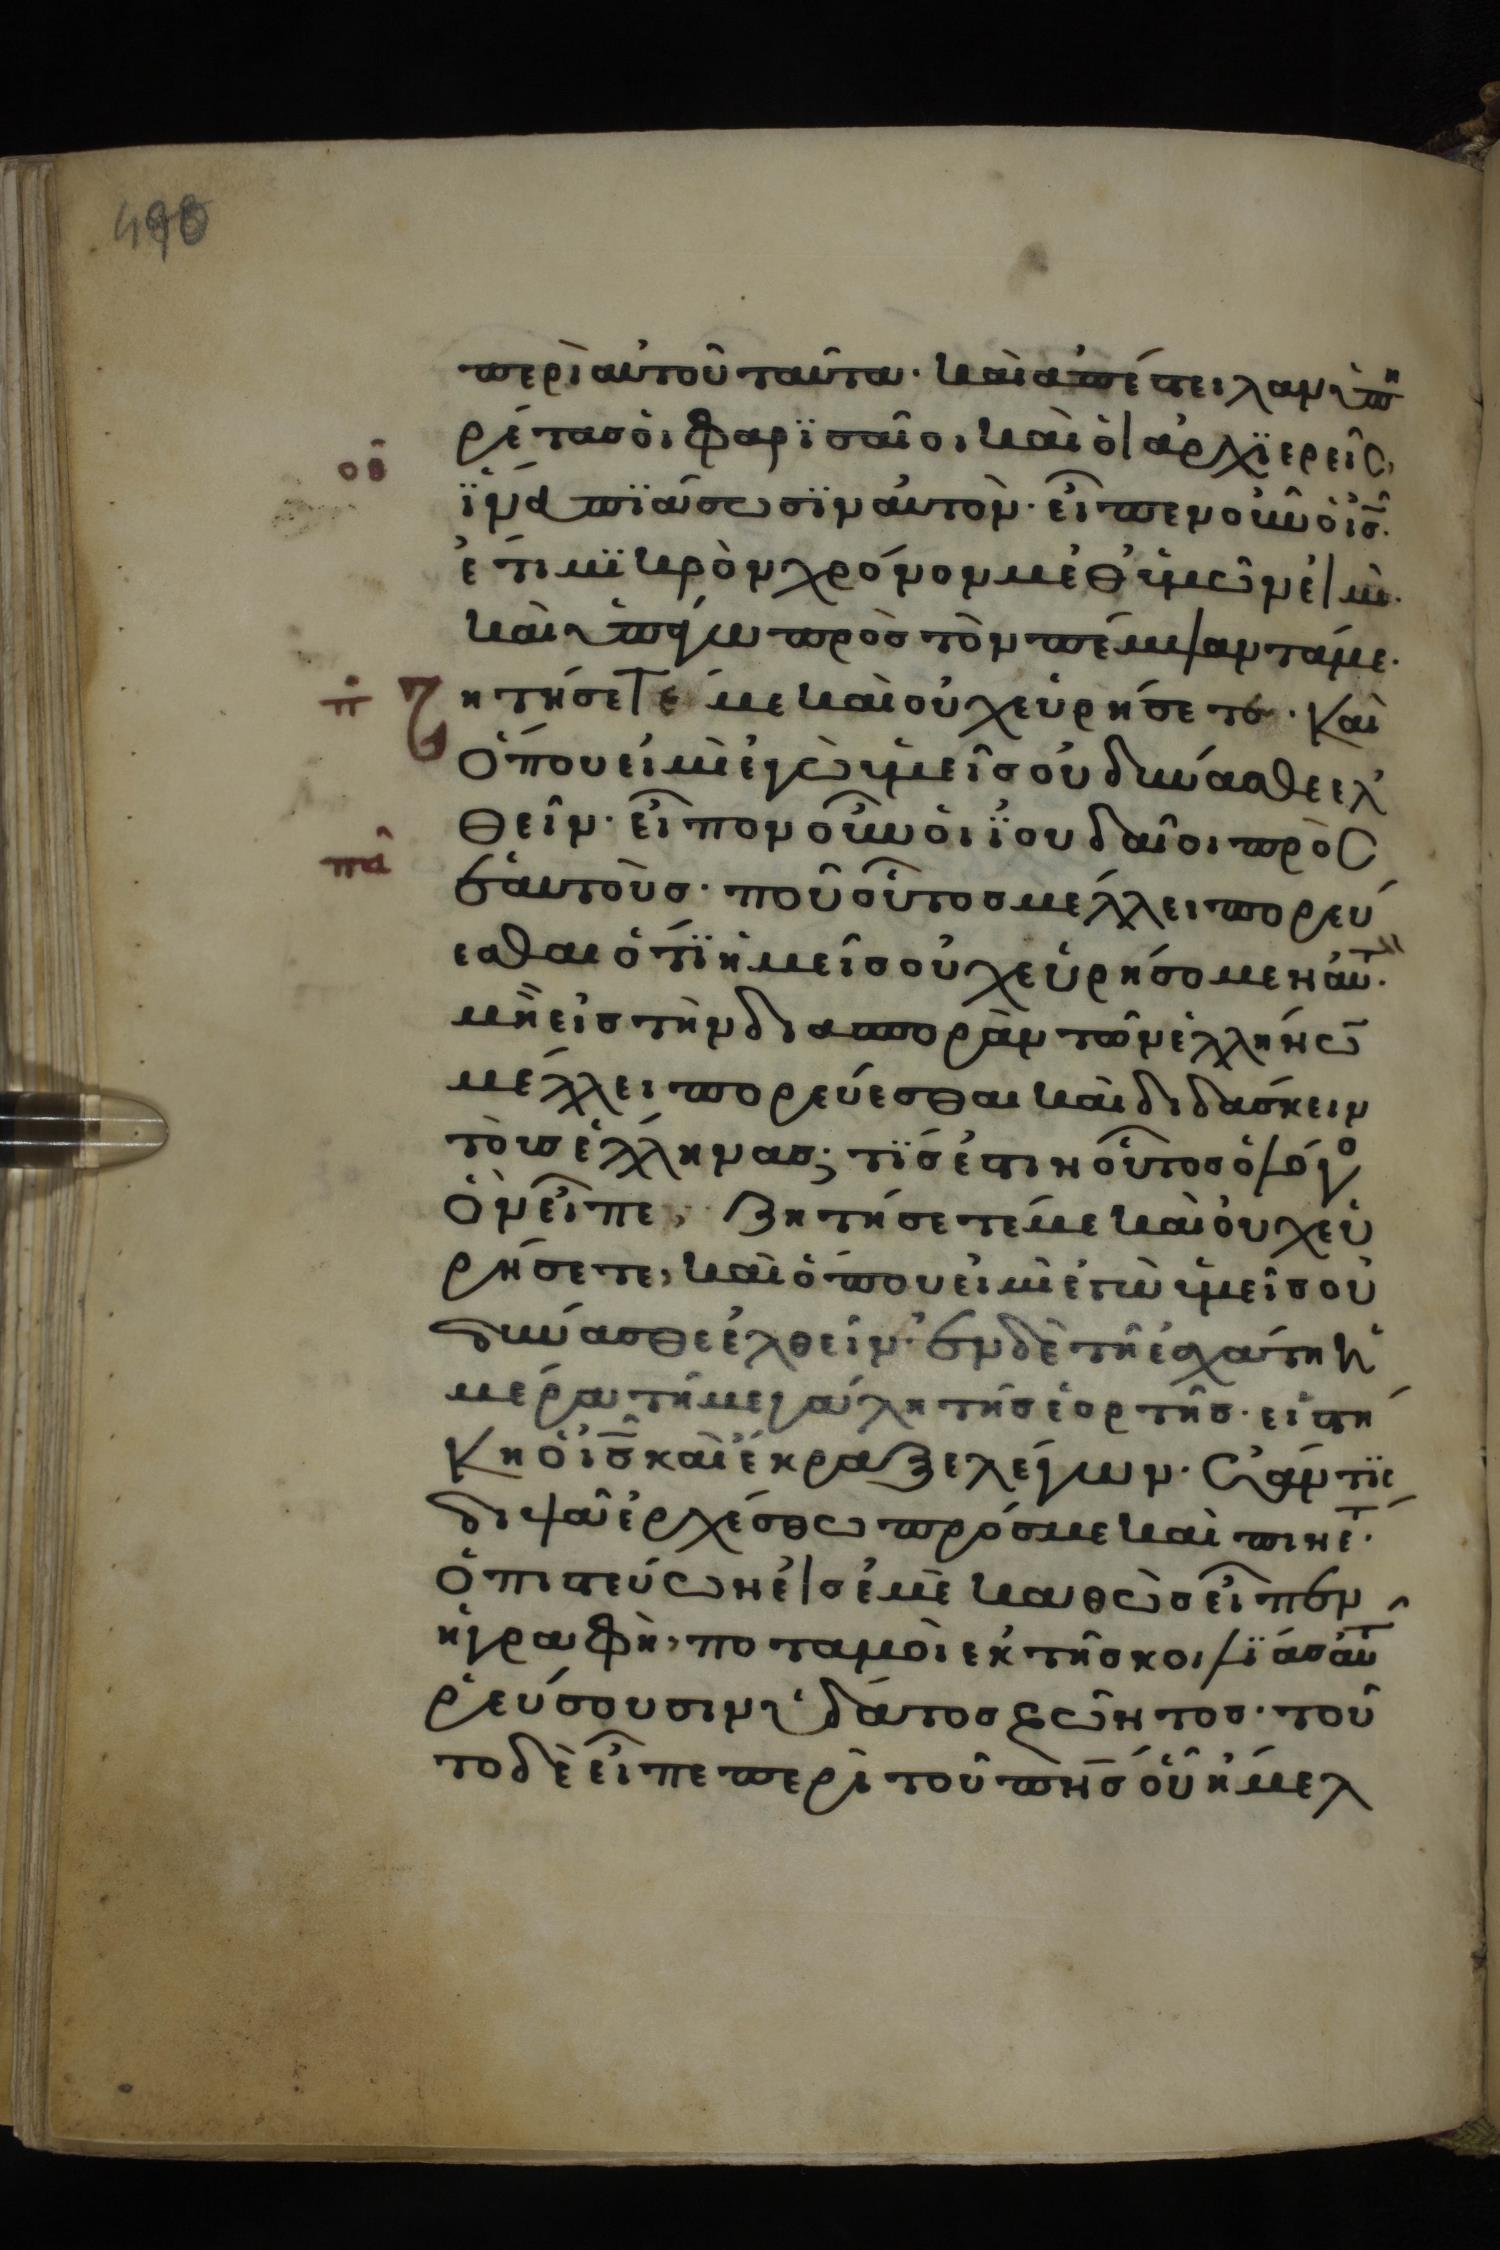 490
περὶ αὐτοῦ ταῦτα· καὶ ἀπέστειλαν ὑπη
ρέτας οἱ φαρϊσαῖοι καὶ οἱ ἀρχϊερεῖς,
οθ
ϊνα πϊάσωσϊν αὐτὸν· εἶπεν οὖν ὁ ις̅·
ἔτι μϊκρὸν χρόνον μεθ' ὑμῶν εἰμὶ·
καὶ ὑπάγω πρὸς τὸν πέμψαντά με·
π Ζ
ητήσετέ με καὶ οὐχ εὑρήσετε· Καὶ
ὅπου εἰμὶ ἐγὼ ὑμεῖς οὐ δύνασθε ελ
θεῖν· εἶπον οὖν οἱ ϊουδαῖοι πρὸς
πα
ἑαυτοὺς· ποῦ οὗτος μέλλει πορεύ
εσθαι ὅτϊ ἡμεῖς οὐχ εὑρήσομεν αὐτ·
μὴ εἰς τὴν διασπορὰν τῶν ἑλλήνω̅
μέλλει πορεύεσθαι καὶ διδάσκειν
τοὺς ἕλληνας; τϊς ἐστιν οὗτος ὁ λόγο
ὃν εἶπε, Ζητήσετέ με καὶ οὐχ εὑ
ρήσετε, καὶ ὅπου εἰμὶ ἐγὼ ὑμεῖς οὐ
δύνασθε ἐλθεῖν· ἐν δὲ τῆ ἐσχάτη ἡ
μέρα τῆ μεγάλη τῆς ἑορτῆς· εἱστή
κη ὁ ις̅ καὶ ἔκραζε λέγων· ἐάν τϊς
διψᾶ ἐρχέσθω πρός με καὶ πινέτ·
ὁ πιστεύων εἰς ἐμὲ καθὼς εἶπεν
ἡ γραφὴ, ποταμοὶ ἐκ τῆς κοιλϊάς αὐτ
ῥεύσουσιν ὕδατος ζῶντος· τοῦ
το δὲ εἶπε περὶ τοῦ πν̅ς οὗ ἤμελ